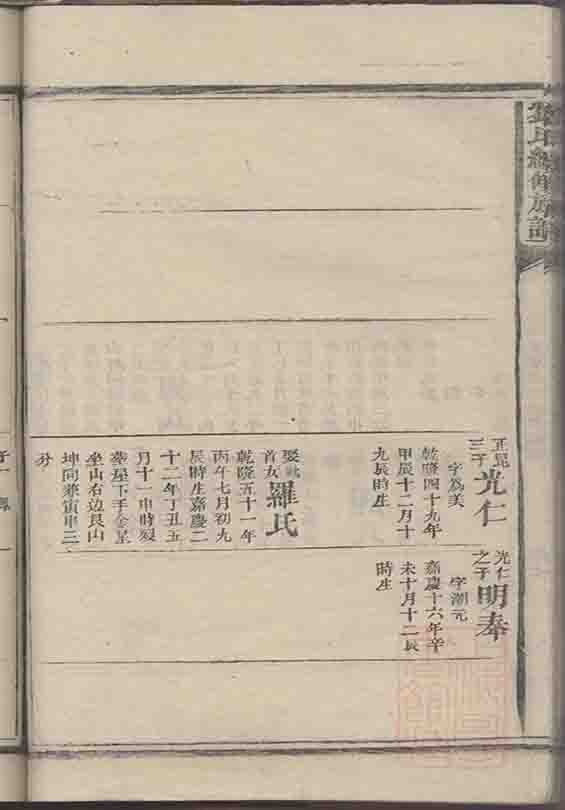 氏續修房譜
三子光仁
字為美
乾隆四十九年
甲辰十二月十
九辰時生
娶
首女羅氏
乾隆五十一年
丙午七月初九
辰時生嘉慶二
十二年丁丑五
月十一申時歿
葬屋下手金星
坐山右边艮山
坤向兼寅申三
分
光仁
之子明奉
字潮元
嘉慶十六年辛
未十月十二辰
時生